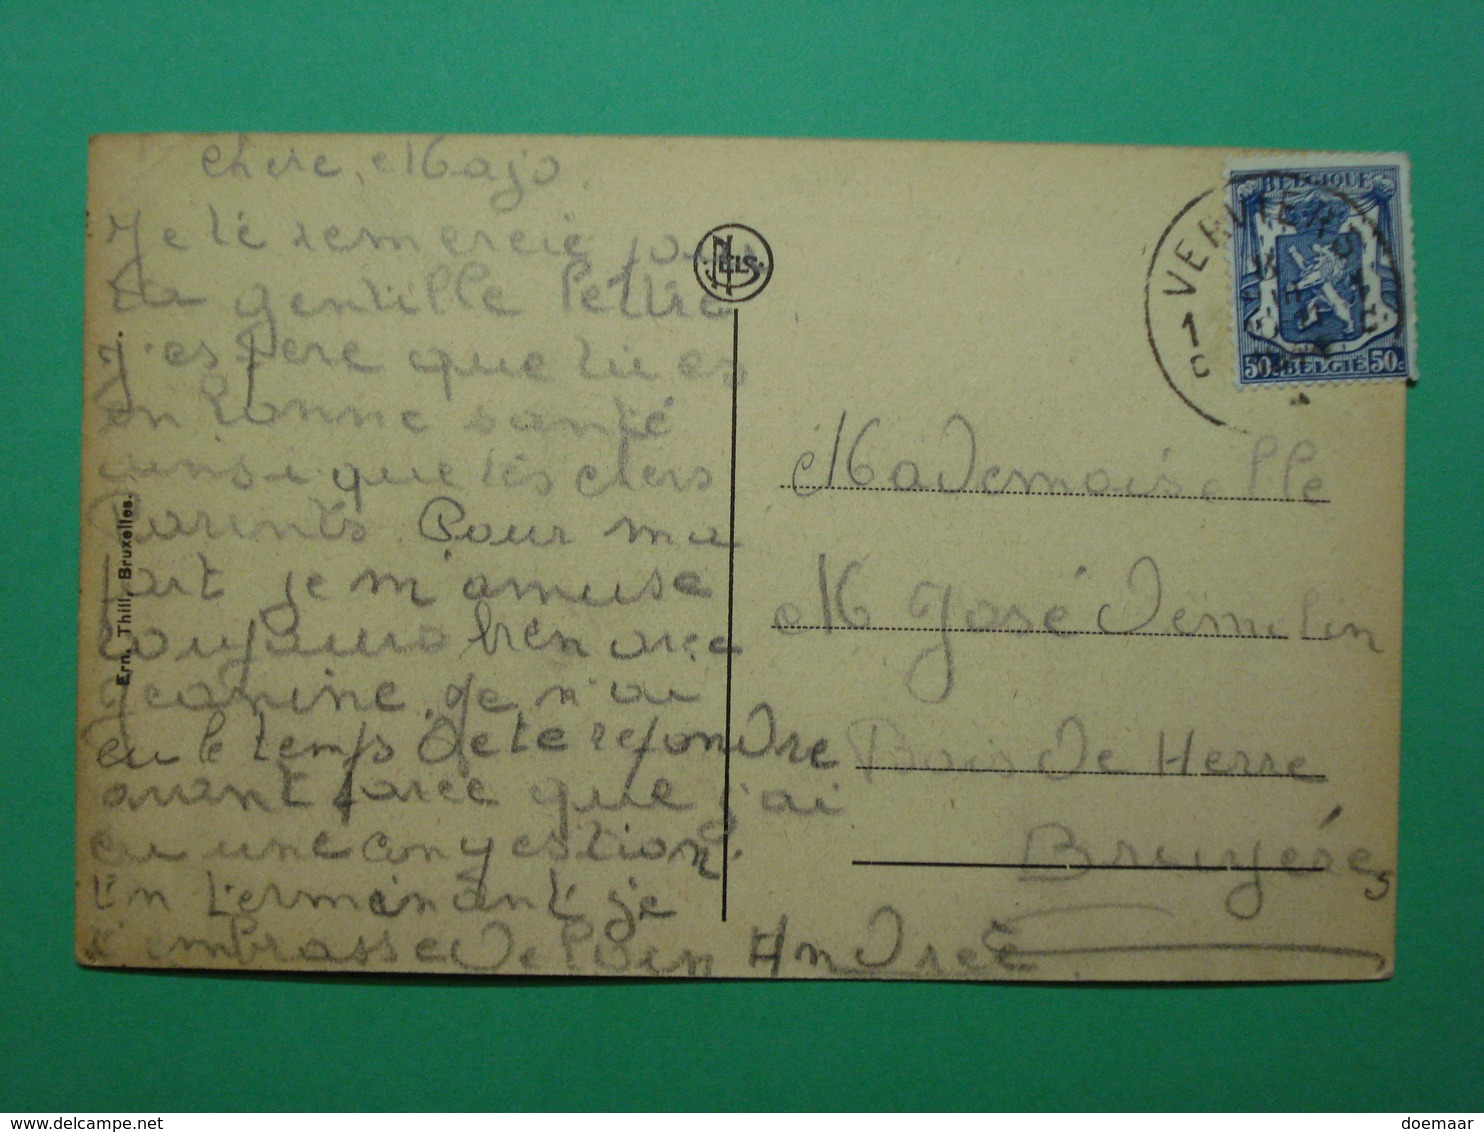 Chere Majo
Je te remercie pour
ta gentille lettre
J'espere que tu es
en bonne santé
ainsi que tes chers
Parents. Pour ma
part je m'amuse
toujours bien avec
Jeanine. Je n'ai
eu le temps de te repondre
avant parce que j'ai
eu une congestion.
En terminant je
t'embrasse de loin Andreé
Ern. Thill, Bruxelles.
NELS
VERVIERS
1
BELGIQUE
50c BELGIË 50c
Mademoiselle
M José Demelin
Bois de Herve
Bruyéres
delcampe.net
doemaar